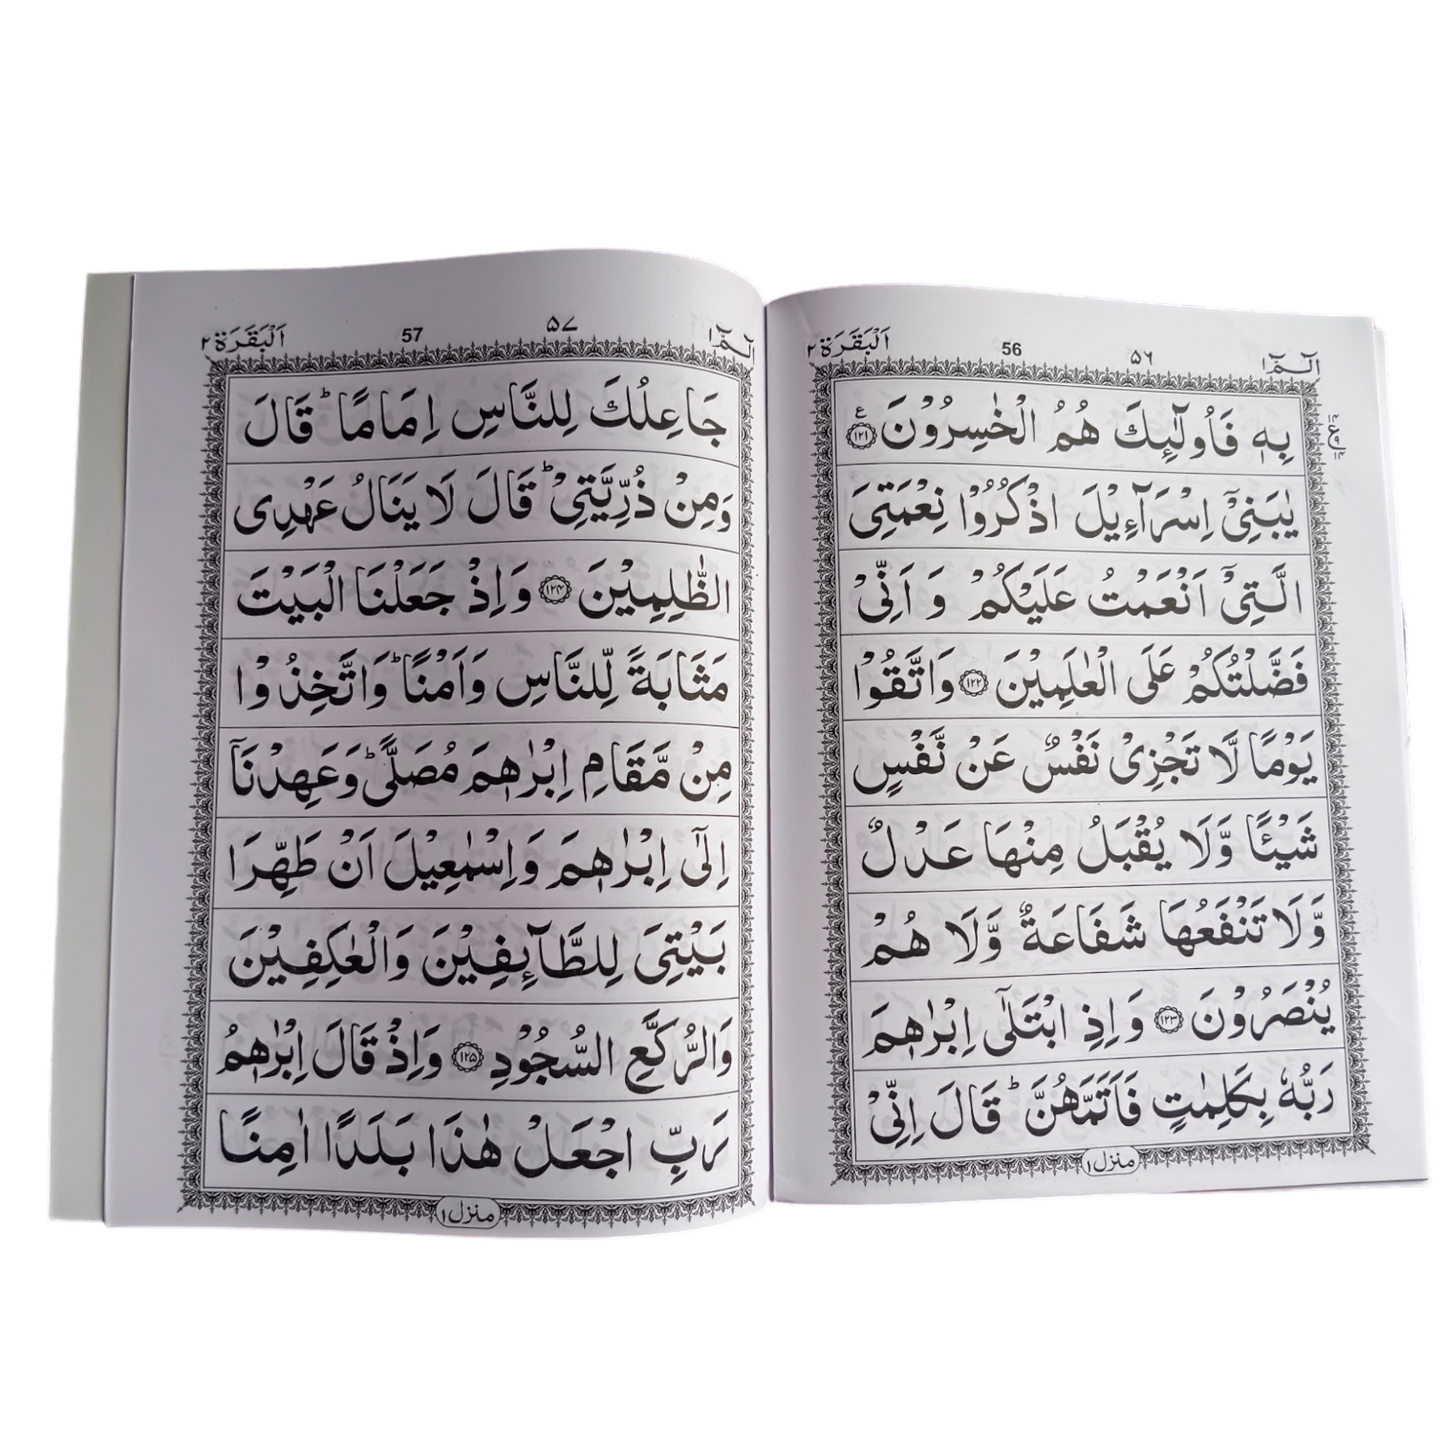 الٓمّٓ ١
۵۶
56
اَلْبَقَرَة ٢
بِهٖ فَاُولٰٓئِكَ هُمُ الْخٰسِرُوْنَ ﴿۱۲۱﴾ ع
يٰبَنِيْٓ اِسْرَآءِيْلَ اذْكُرُوْا نِعْمَتِيَ
الَّتِيْٓ اَنْعَمْتُ عَلَيْكُمْ وَ اَنِّيْ
فَضَّلْتُكُمْ عَلَى الْعٰلَمِيْنَ ﴿۱۲۲﴾ وَاتَّقُوْا
يَوْمًا لَّا تَجْزِيْ نَفْسٌ عَنْ نَّفْسٍ
شَيْـًٔا وَّلَا يُقْبَلُ مِنْهَا عَدْلٌ
وَّلَا تَنْفَعُهَا شَفَاعَةٌ وَّلَا هُمْ
يُنْصَرُوْنَ ﴿۱۲۳﴾ وَ اِذِ ابْتَلٰٓى اِبْرٰهٖمَ
رَبُّهٗ بِكَلِمٰتٍ فَاَتَمَّهُنَّ ؕ قَالَ اِنِّيْ
منزل ١
الٓمّٓ ١
۵۷
57
اَلْبَقَرَة ٢
جَاعِلُكَ لِلنَّاسِ اِمَامًا ؕ قَالَ
وَمِنْ ذُرِّيَّتِيْ ؕ قَالَ لَا يَنَالُ عَهْدِي
الظّٰلِمِيْنَ ﴿۱۲۴﴾ وَ اِذْ جَعَلْنَا الْبَيْتَ
مَثَابَةً لِّلنَّاسِ وَاَمْنًا ؕ وَاتَّخِذُوْا
مِنْ مَّقَامِ اِبْرٰهٖمَ مُصَلًّى ؕ وَعَهِدْنَآ
اِلٰٓى اِبْرٰهٖمَ وَاِسْمٰعِيْلَ اَنْ طَهِّرَا
بَيْتِيَ لِلطَّآئِفِيْنَ وَالْعٰكِفِيْنَ
وَالرُّكَّعِ السُّجُوْدِ ﴿۱۲۵﴾ وَاِذْ قَالَ اِبْرٰهٖمُ
رَبِّ اجْعَلْ هٰذَا بَلَدًا اٰمِنًا
منزل ١